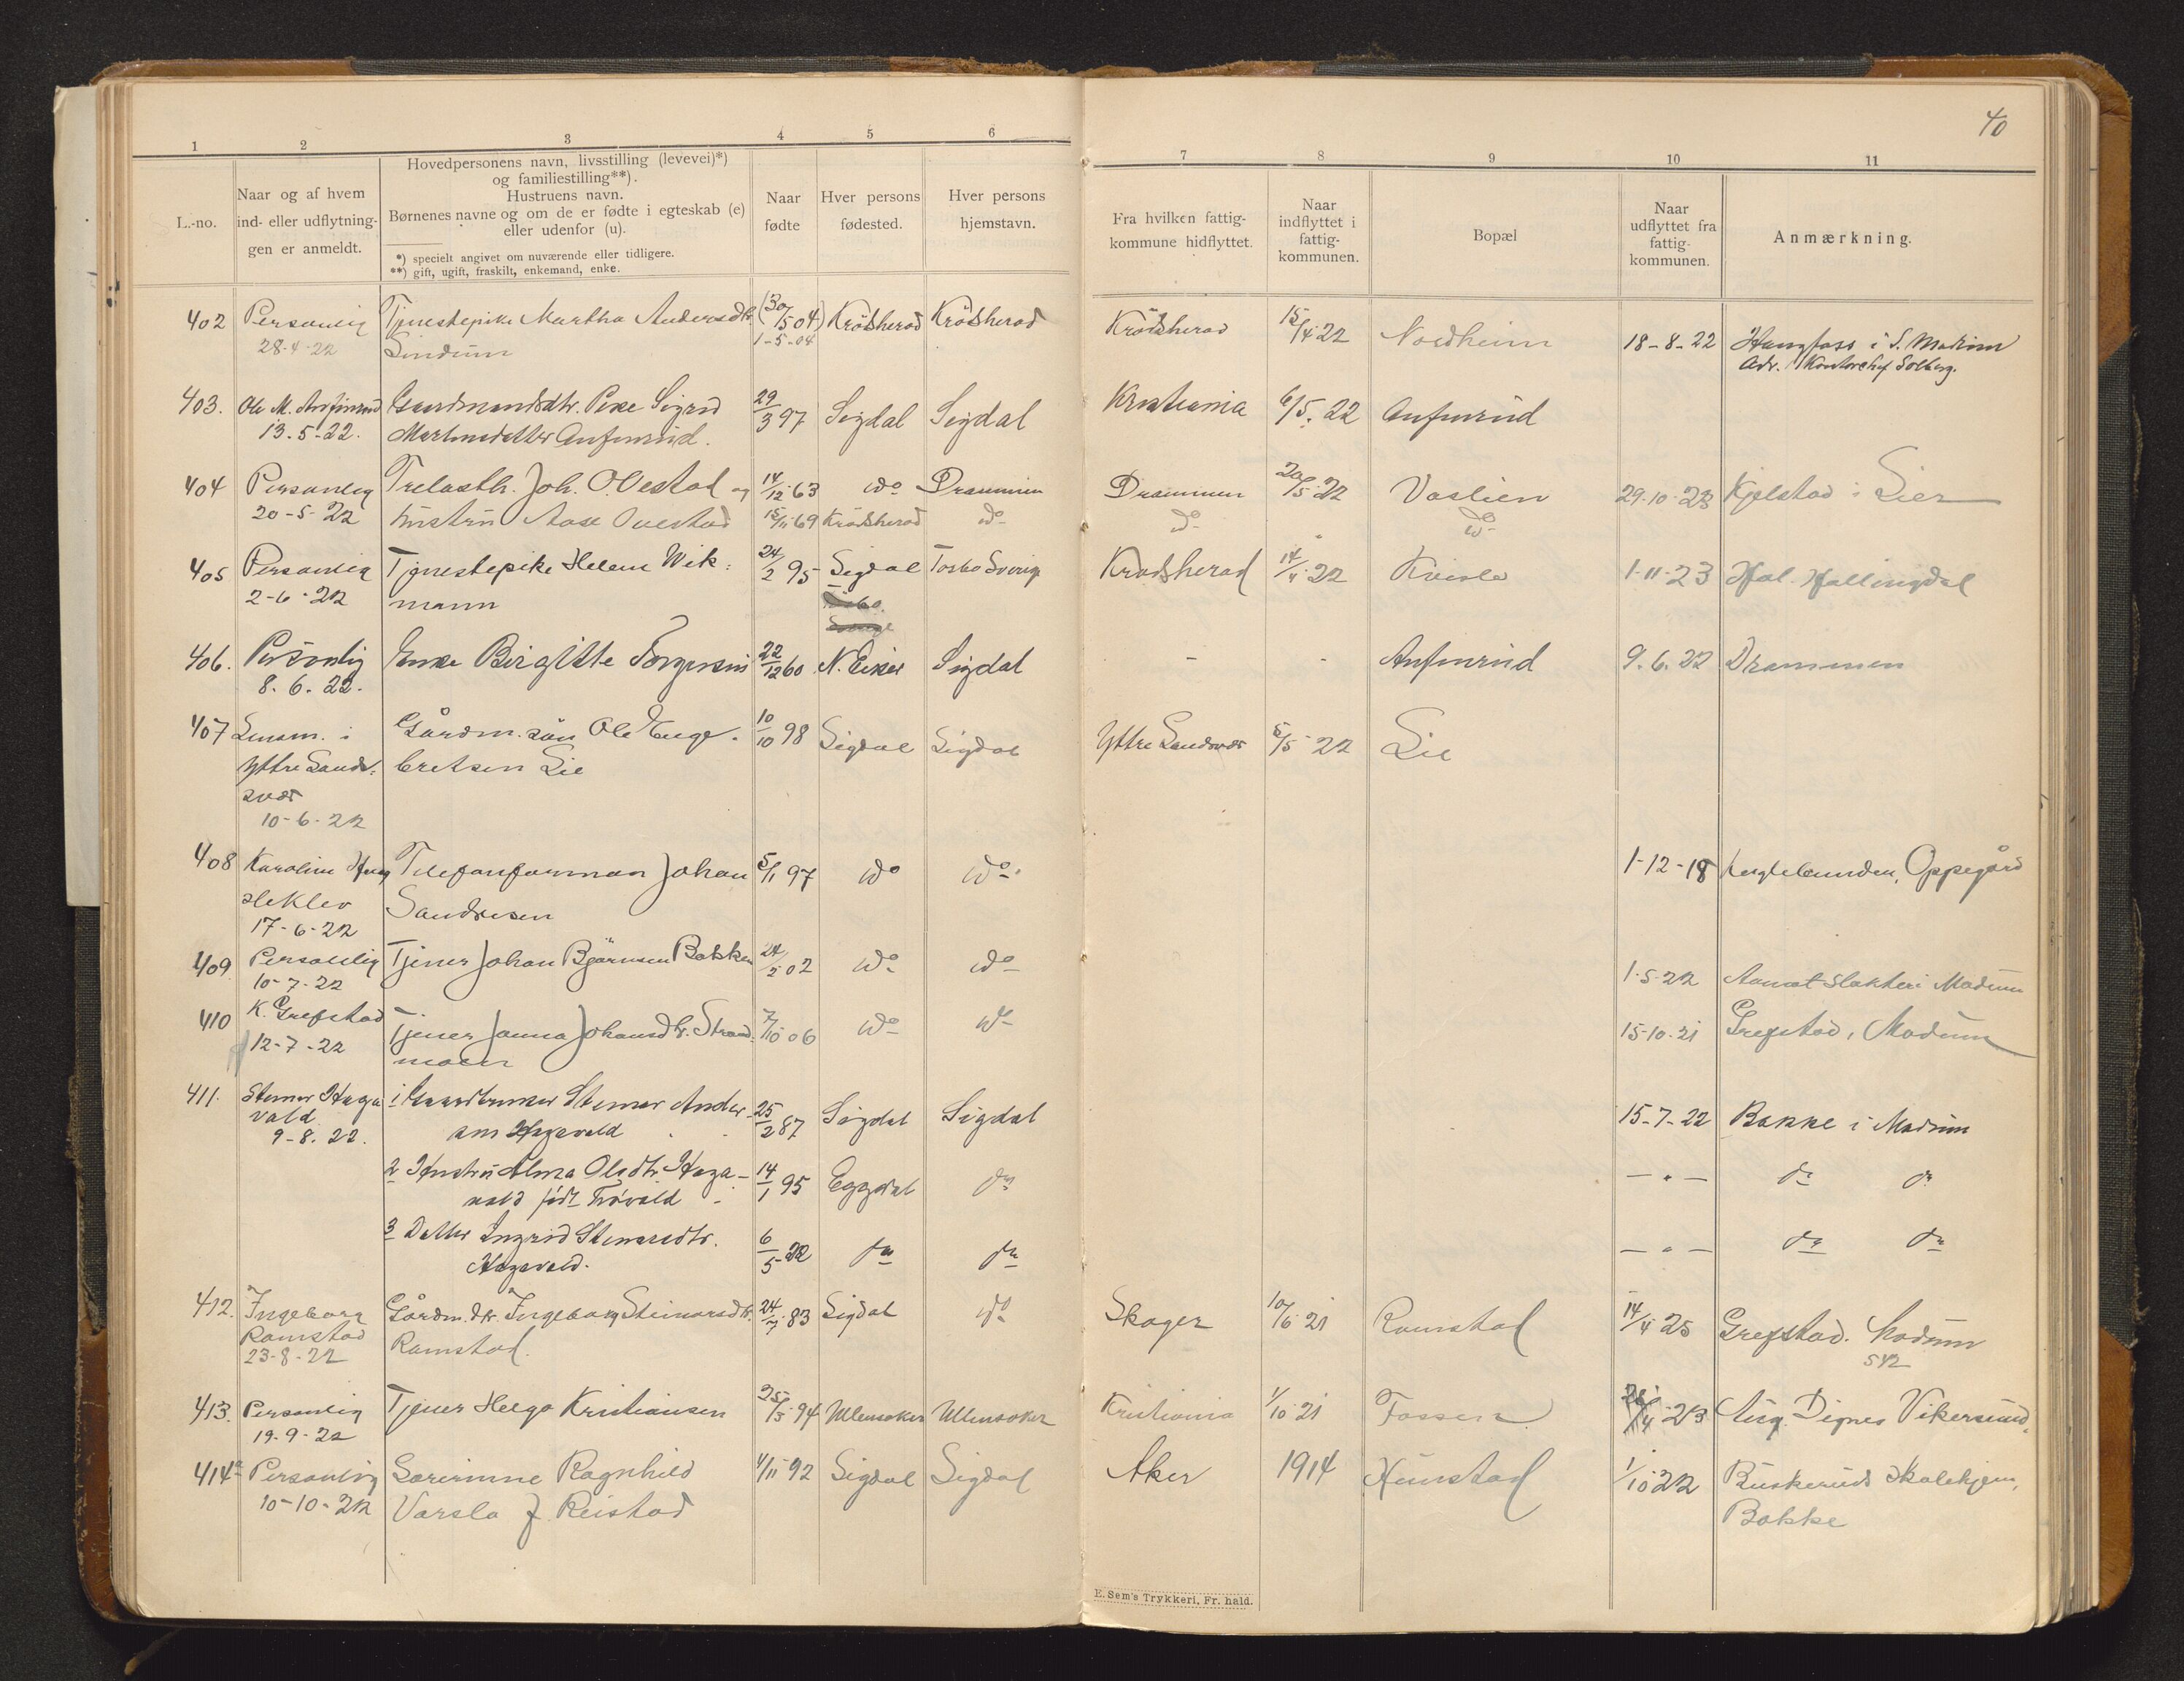 40
1 2 3 4 5 6 7 8 9 10 11
L.-no.
Naar og af hvem
ind- eller udflytnin-
gen er anmeldt.
Hovedpersonens navn, livsstilling (levevei)*)
og familiestilling**).
Hustruens navn.
Børnenes navne og om de er fødte i egteskab (e)
eller udenfor (u).
*) specielt angivet om nuværende eller tidligere.
**) gift, ugift, fraskilt, enkemand, enke.
Naar
fødte
Hver persons
fødested.
Hver persons
hjemstavn.
Fra hvilken fattig-
kommune hidflyttet.
Naar
indflyttet i
fattig-
kommunen.
Bopæl
Naar
udflyttet fra
fattig-
kommunen.
Anmærkning.
402 Personlig Tjenestepike Martha Andersdtr. (30/5 04) Krödsherad Krödsherad Krödsherad 15/4 22 Nordheim 18-8-22 Haugfoss i S. Modum
28-4-22 Sindum 1-5-04 Adr. Kontorchef Solberg.
403. Ole M. Anfinrud Gaardmandsdtr. Pike Sigrid 29/3 97 Sigdal Sigdal Kristiania 6/5. 22 Anfinrud
13.5-22. Martinsdatter Anfinrud.
404 Personlig Trelasth. Joh. O. Vestad og 14/12 63 do Drammen Drammen 20/5-22 Vaslien 29-10-23 Kjelstad i Lier
20-5-22 hustru Aase Ovestad 15/11 69 Krödsherad do do do
405 Personlig Tjenestepike Helene Wik: 24/2 95 Sigdal Tosbo Sverige Krødsherad 14/4 22 Kvisle 1-11-23 Hol. Hallingdal
2-6-22 mann
Sverige
406. Personlig Enke Birgitte Torgersen 22/12 60 N. Eiker Sigdal - - Anfinrud 9.6.22 Drammen
8.6.22.
407 Lensm. i Gårdm. sön Ole Enge- 10/10 98 Sigdal Sigdal Yttre Sandsvær 5/5 22 Lie
Yttre Sand- bretsen Lie
svær
10-6-22
408 Karoline Haug Telefonformann Johan 5/1 97 do do 1-12-18 Oppegård
slekler Sandersen
17-6-22
409. Personlig Tjener Johan Björnsen Bakken 24/2 02 do do 1-5-22 Aamot Slakteri Modum
10-7-22
410 K. Grefstad Tjener Janna Johansdtr. Strand- 7/10 06 do do 15-10-21 Grefstad, Modum
12-7-22 moen
411. Steinar Haga- 1 Gaardbruker Steinar Ander- 25/2 87 Sigdal Sigdal 15-7-22 Bakke i Modum
vald sen Hagavald
9-8.22.
2 Hustru Alma Olsdtr. Haga- 14/1 95 Eggedal do — " — do do
vald født Trövald
3 Datter Ingrid Steinarsdtr. 6/5 22 do do — " — do do
Hagavald.
412. Ingeborg Gårdm. dtr. Ingeborg Steinarsdtr. 24/7 83 Sigdal do Skoger 10/6 21 Ramstad 14/4 25 Grefstad. Modum
Ramstad Ramstad. 542
23-8-22
413. Personlig Tjener Helga Kristiansen 25/3 94 Ullensaker Ullensaker Kristiania 1/10 21 Fossen 4 23 Dignes Vikersund.
19-9-22
414a Personlig Ragnhild 4/11-92 Sigdal Sigdal Aker 1914 Hunstad 1/10 22 Buskeruds Skolehjem,
10-10-22 Varslo f. Reistad Bakke
E. Sem's Trykkeri, Fr. hald.